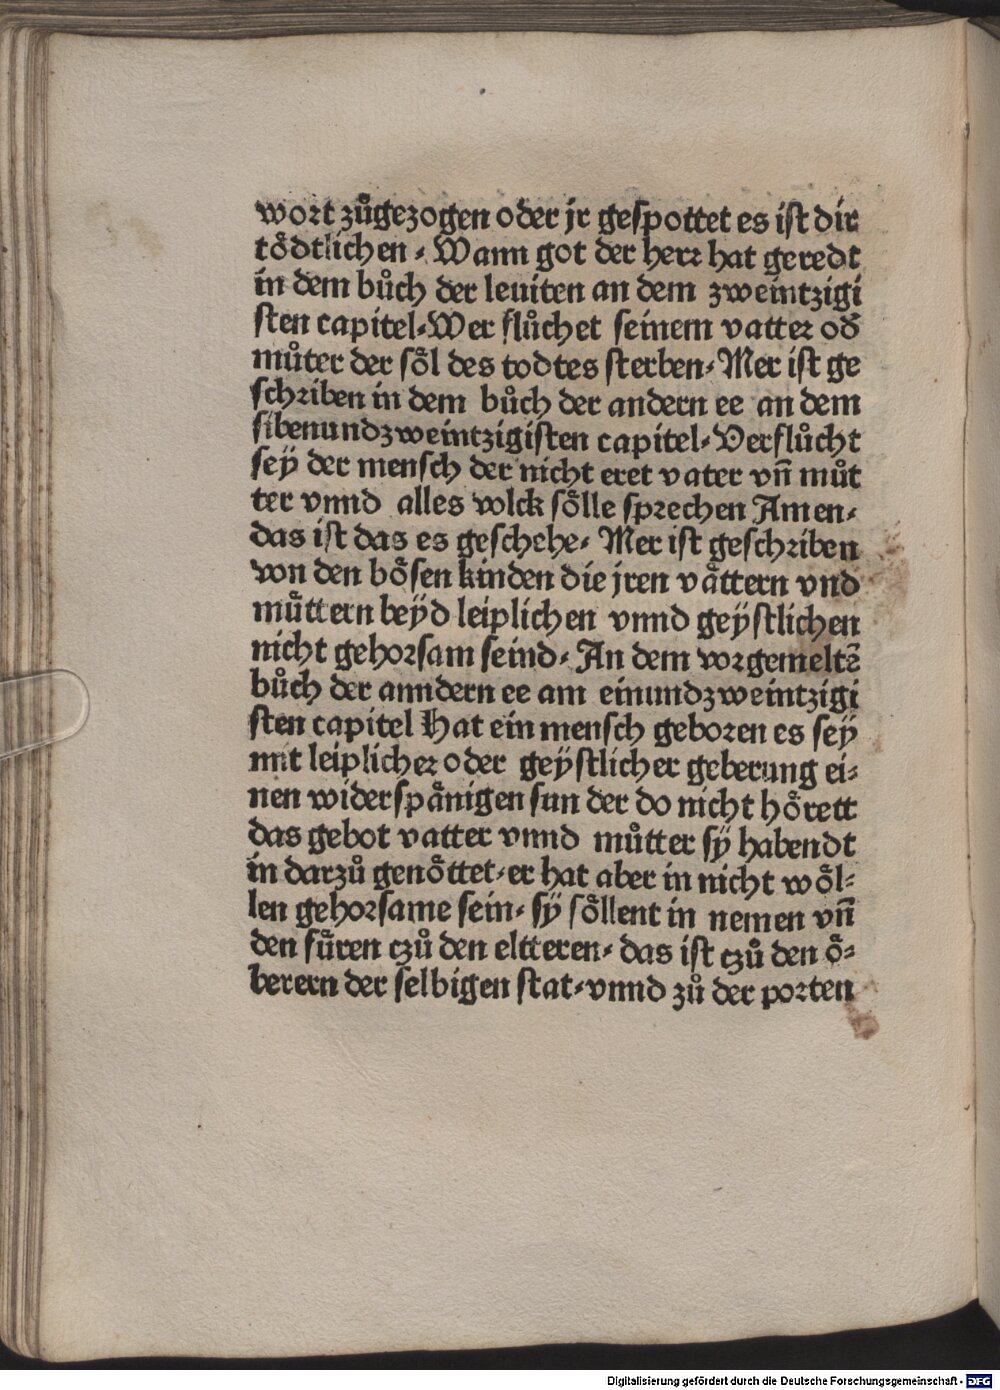 wort zůgezogen oder jr gespottet es ist dir
tödtlichen. Wann got der herr hat geredt
in dem bůch der leuiten an dem zweintzigi
sten capitel. Wer flůchet seinem vatter od
můter der söl des todtes sterben. Mer ist ge
schriben in dem bůch der andern ee an dem
sibenundzweintzigisten capitel. Verflůcht
sey̋ der mensch der nicht eret vater vn̄ můt
ter vnnd alles volck sölle sprechen Amen.
das ist das es geschehe. Mer ist geschriben
von den bösen kinden die jren vättern vnd
müttern bey̋d leiplichen vnnd gey̋stlichen
nicht gehorsam seind. An dem vorgemeltē
bůch der anndern ee am einundzweintzigi
sten capitel Hat ein mensch geboren es sey̋
mit leiplicher oder gey̋stlicher geberung ei-
nen widerspänigen sun der do nicht hörett
das gebot vatter vnnd můtter sy̋ habendt
in darzů genöttet. er hat aber in nicht wöl-
len gehorsame sein. sy̋ söllent in nemen vn̄
den füren czů den eltteren. das ist czů den ö-
berern der selbigen stat. vnnd zů der porten
Digitalisierung gefördert durch die Deutsche Forschungsgemeinschaft - DFG